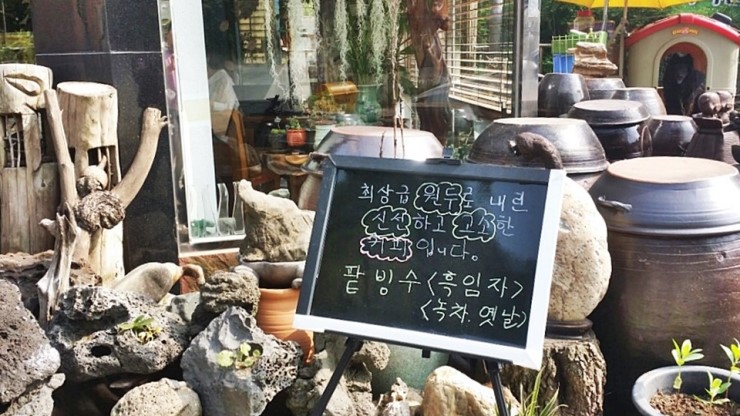 최상급 원두로 내린
신선하고 고소한
커피입니다.
팥빙수 <흑임자>
<녹차. 옛날>